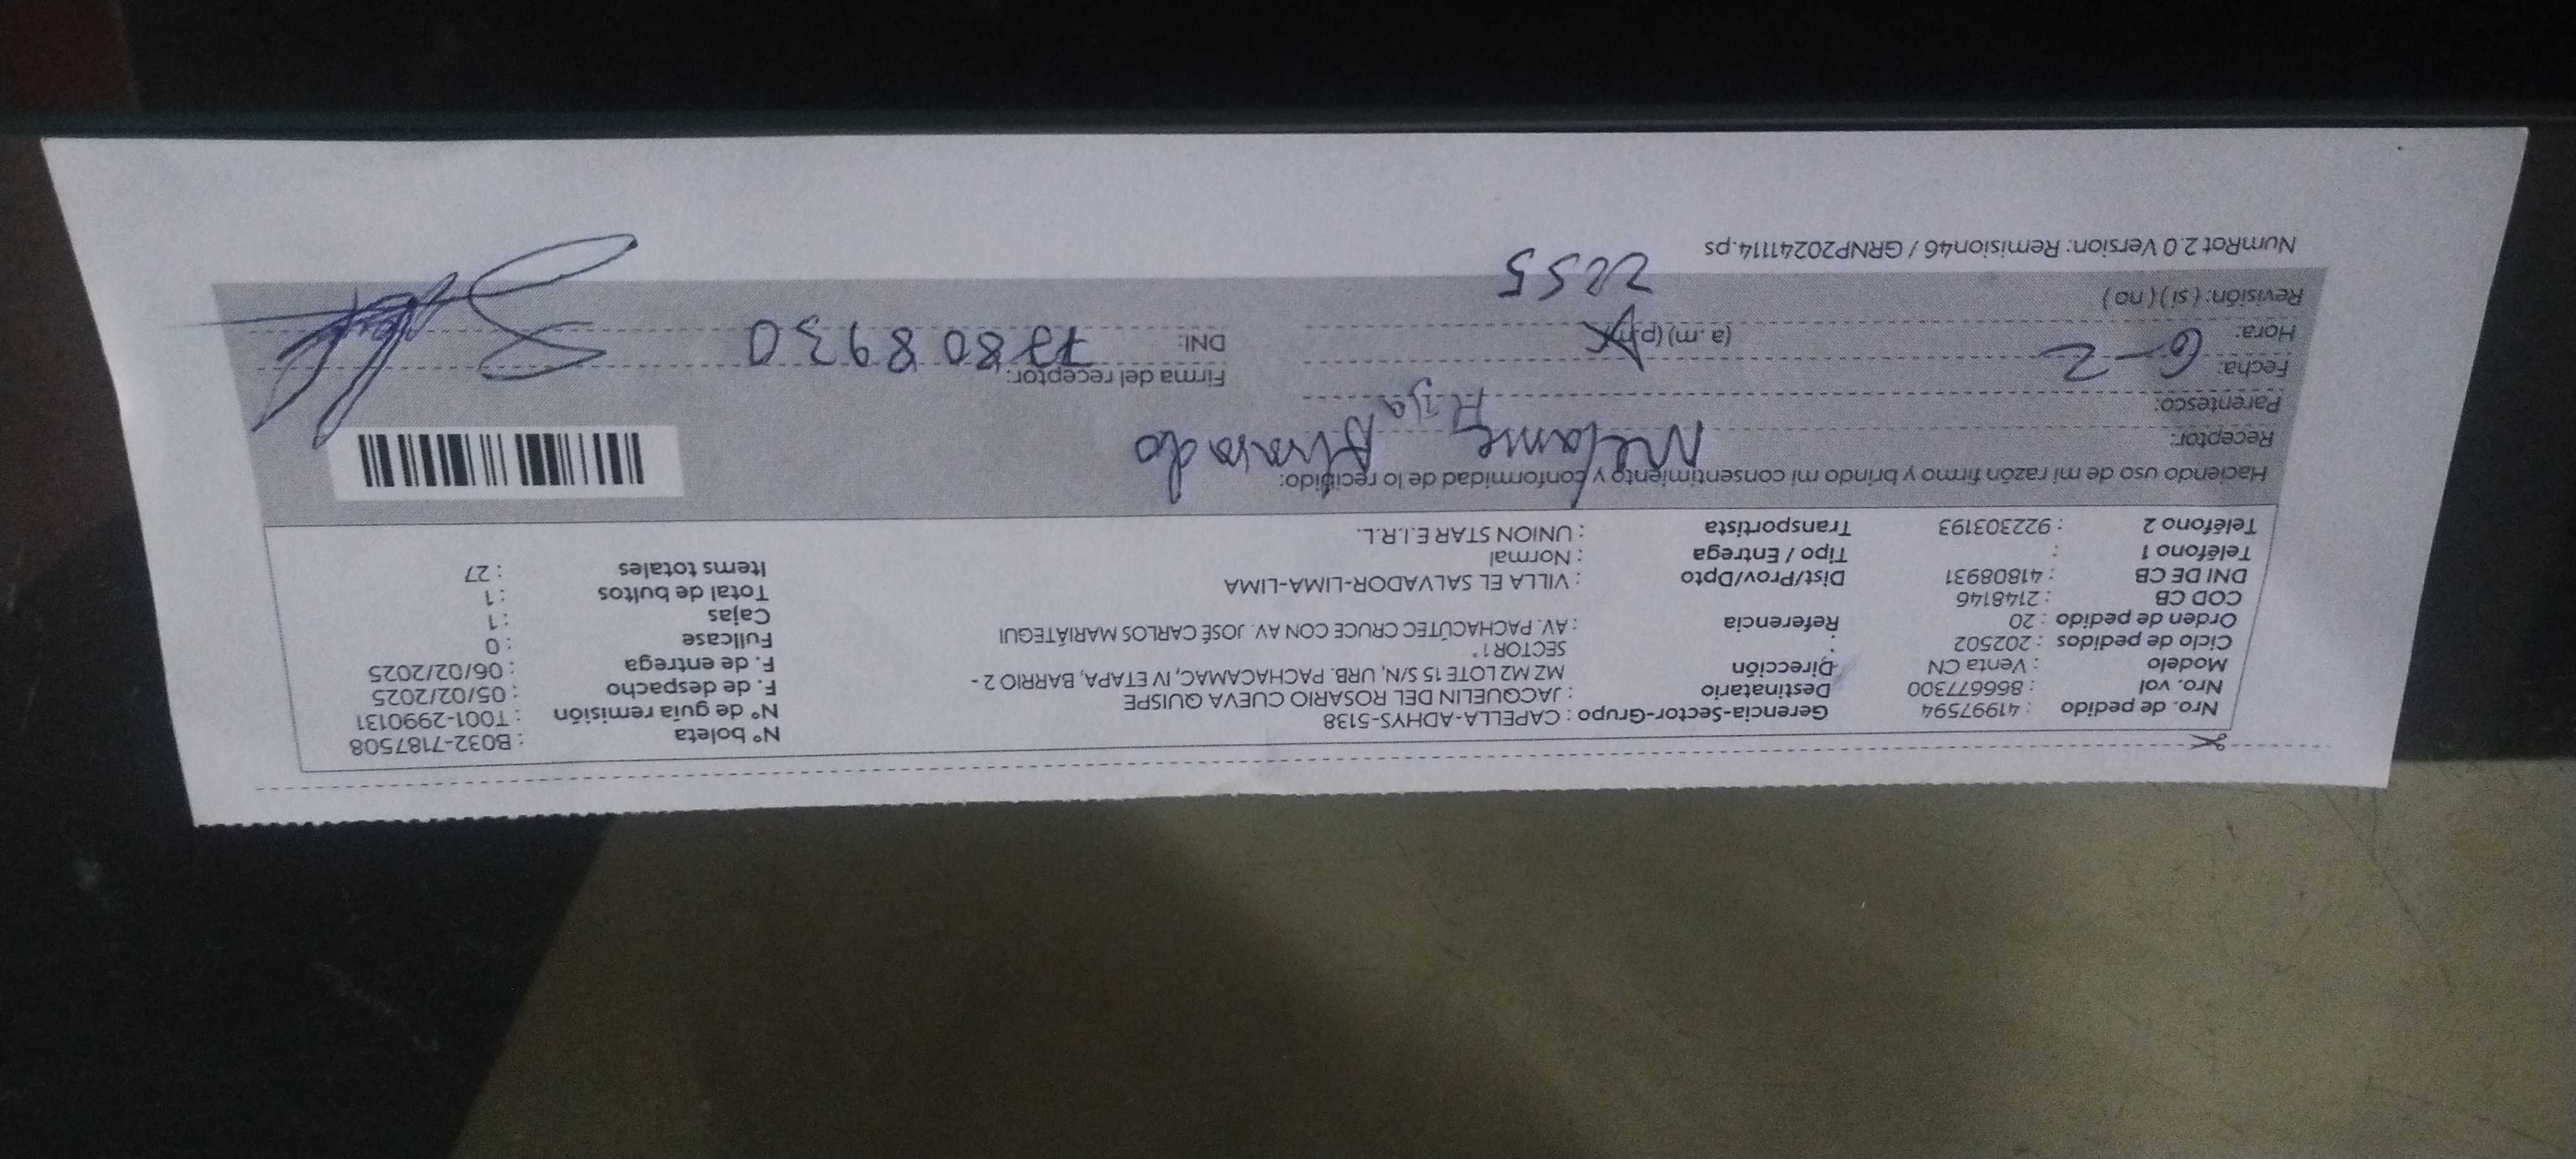 Nro. de pedido : 41997594 Gerencia-Sector-Grupo : CAPELLA-ADHYS-5138 N° boleta : B032-7187508
Nro. vol : 866677300 Destinatario : JACQUELIN DEL ROSARIO CUEVA QUISPE N° de guía remisión : T001-2990131
Modelo : Venta CN Dirección : MZ M2 LOTE 15 S/N, URB. PACHACAMAC, IV ETAPA, BARRIO 2 - F. de despacho : 05/02/2025
Ciclo de pedidos : 202502 SECTOR1" F. de entrega : 06/02/2025
Orden de pedido : 20 Referencia : AV. PACHACÚTEC CRUCE CON AV. JOSÉ CARLOS MARIÁTEGUI Fullcase : 0
COD CB : 2148146 Cajas : 1
DNI DE CB : 41808931 Dist/Prov/Dpto : VILLA EL SALVADOR-LIMA-LIMA Total de bultos : 1
Teléfono 1 : Tipo / Entrega : Normal Items totales : 27
Teléfono 2 : 922303193 Transportista : UNION STAR E.I.R.L.
Haciendo uso de mi razón firmo y brindo mi consentimiento y conformidad de lo recibido:
Receptor: Alvarado
Parentesco: Hija
Fecha: 6-2 Firma del receptor:
Hora: (a.m) (p.m) DNI: 77808930
Revisión: ( si ) ( no ) 2255
NumRot 2.0 Version: Remision46 / GRNP20241114.ps